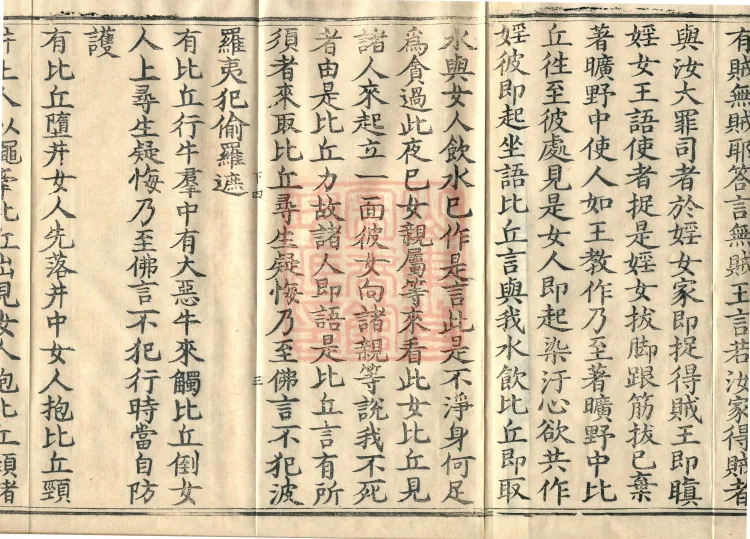 有賊無賊耶荅言無賊王言若汝家得賊者
與汝大罪司者於婬女家即捉得賊王即瞋
婬女王語使者捉是婬女拔脚跟筋拔已棄
著曠野中使人如王教作乃至著曠野中比
丘徃至彼處見是女人即起染汙心欲共作
婬彼即起坐語比丘言與我水飲比丘即取
水與女人飲水已作是言此是不淨身何足
為貪過此夜已女親屬等來看此女比丘見
諸人來起立一面彼女向諸親等說我不死
者由是比丘力故諸人即語是比丘言有所
須者來取比丘尋生疑悔乃至佛言不犯波
羅夷犯偷羅遮
下四
三
有比丘行牛羣中有大惡牛來觸比丘倒女
人上尋生疑悔乃至佛言不犯行時當自防
護
有比丘墮井女人先落井中女人抱比丘頸
井上人以繩牽比丘出見女人抱比丘頸諸